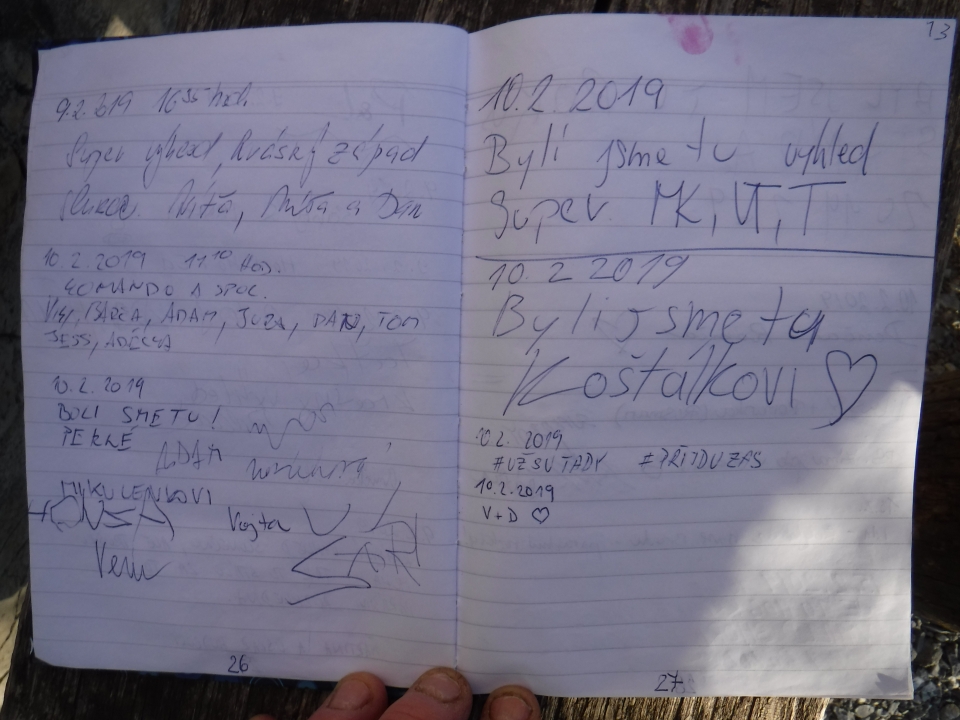 9.2.2019 16 35 hod.
Super výhled, krásný západ
Slunce. Míša a Dan
10.2.2019 11 10 HOD.
KOMANDO A SPOL.
BARČA, ADAM, JUZA, TOM
JESS, ADÉLKA
10.2.2019
BOLI SMETU!
PEKNÉ
ADAM
MIKULENKOVI
Vojta
Veru
26
13
10.2.2019
Byli jsme tu výhled
Super. MK, VT, T
10.2 2019
Byli jsme ta
Košťálkovi ♡
10.2. 2019
#UŽSUTADY #PŘIJDUZAS
10.2.2019
V+D ♡
27